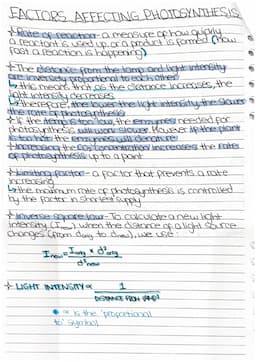 FACTORS AFFECTING PHOTOSYNTHESIS
* Rate of reaction - a measure of how quickly
a reactant is used up or a product is formed (how
fast a reaction is happening)
* The distance from the lamp and light intensity
are inversely proportional to each other
↳ this means that as the distance increases, the
light intensity decreases
↳ therefore, the lower the light intensity the slower
the rate of photosynthesis
* If the temp is too low, the enzymes needed for
photosynthesis will work slower. However if the plant
is too hot the enzymes will denature
* Increasing the CO₂ concentration increases the rate
of photosynthesis up to a point
* Limiting factor - a factor that prevents a rate
increasing
↳ the maximum rate of photosynthesis is controlled
by the factor in shortest supply
* Inverse square law - To calculate a new light
intensity (Inew) when the distance of a light source
changes (from dorig to dnew), we use:
Inew = Iorig × d²orig
d²new
* LIGHT INTENSITY ∝ 1
DISTANCE FROM LAMP²
* ∝ is the 'proportional
to' symbol